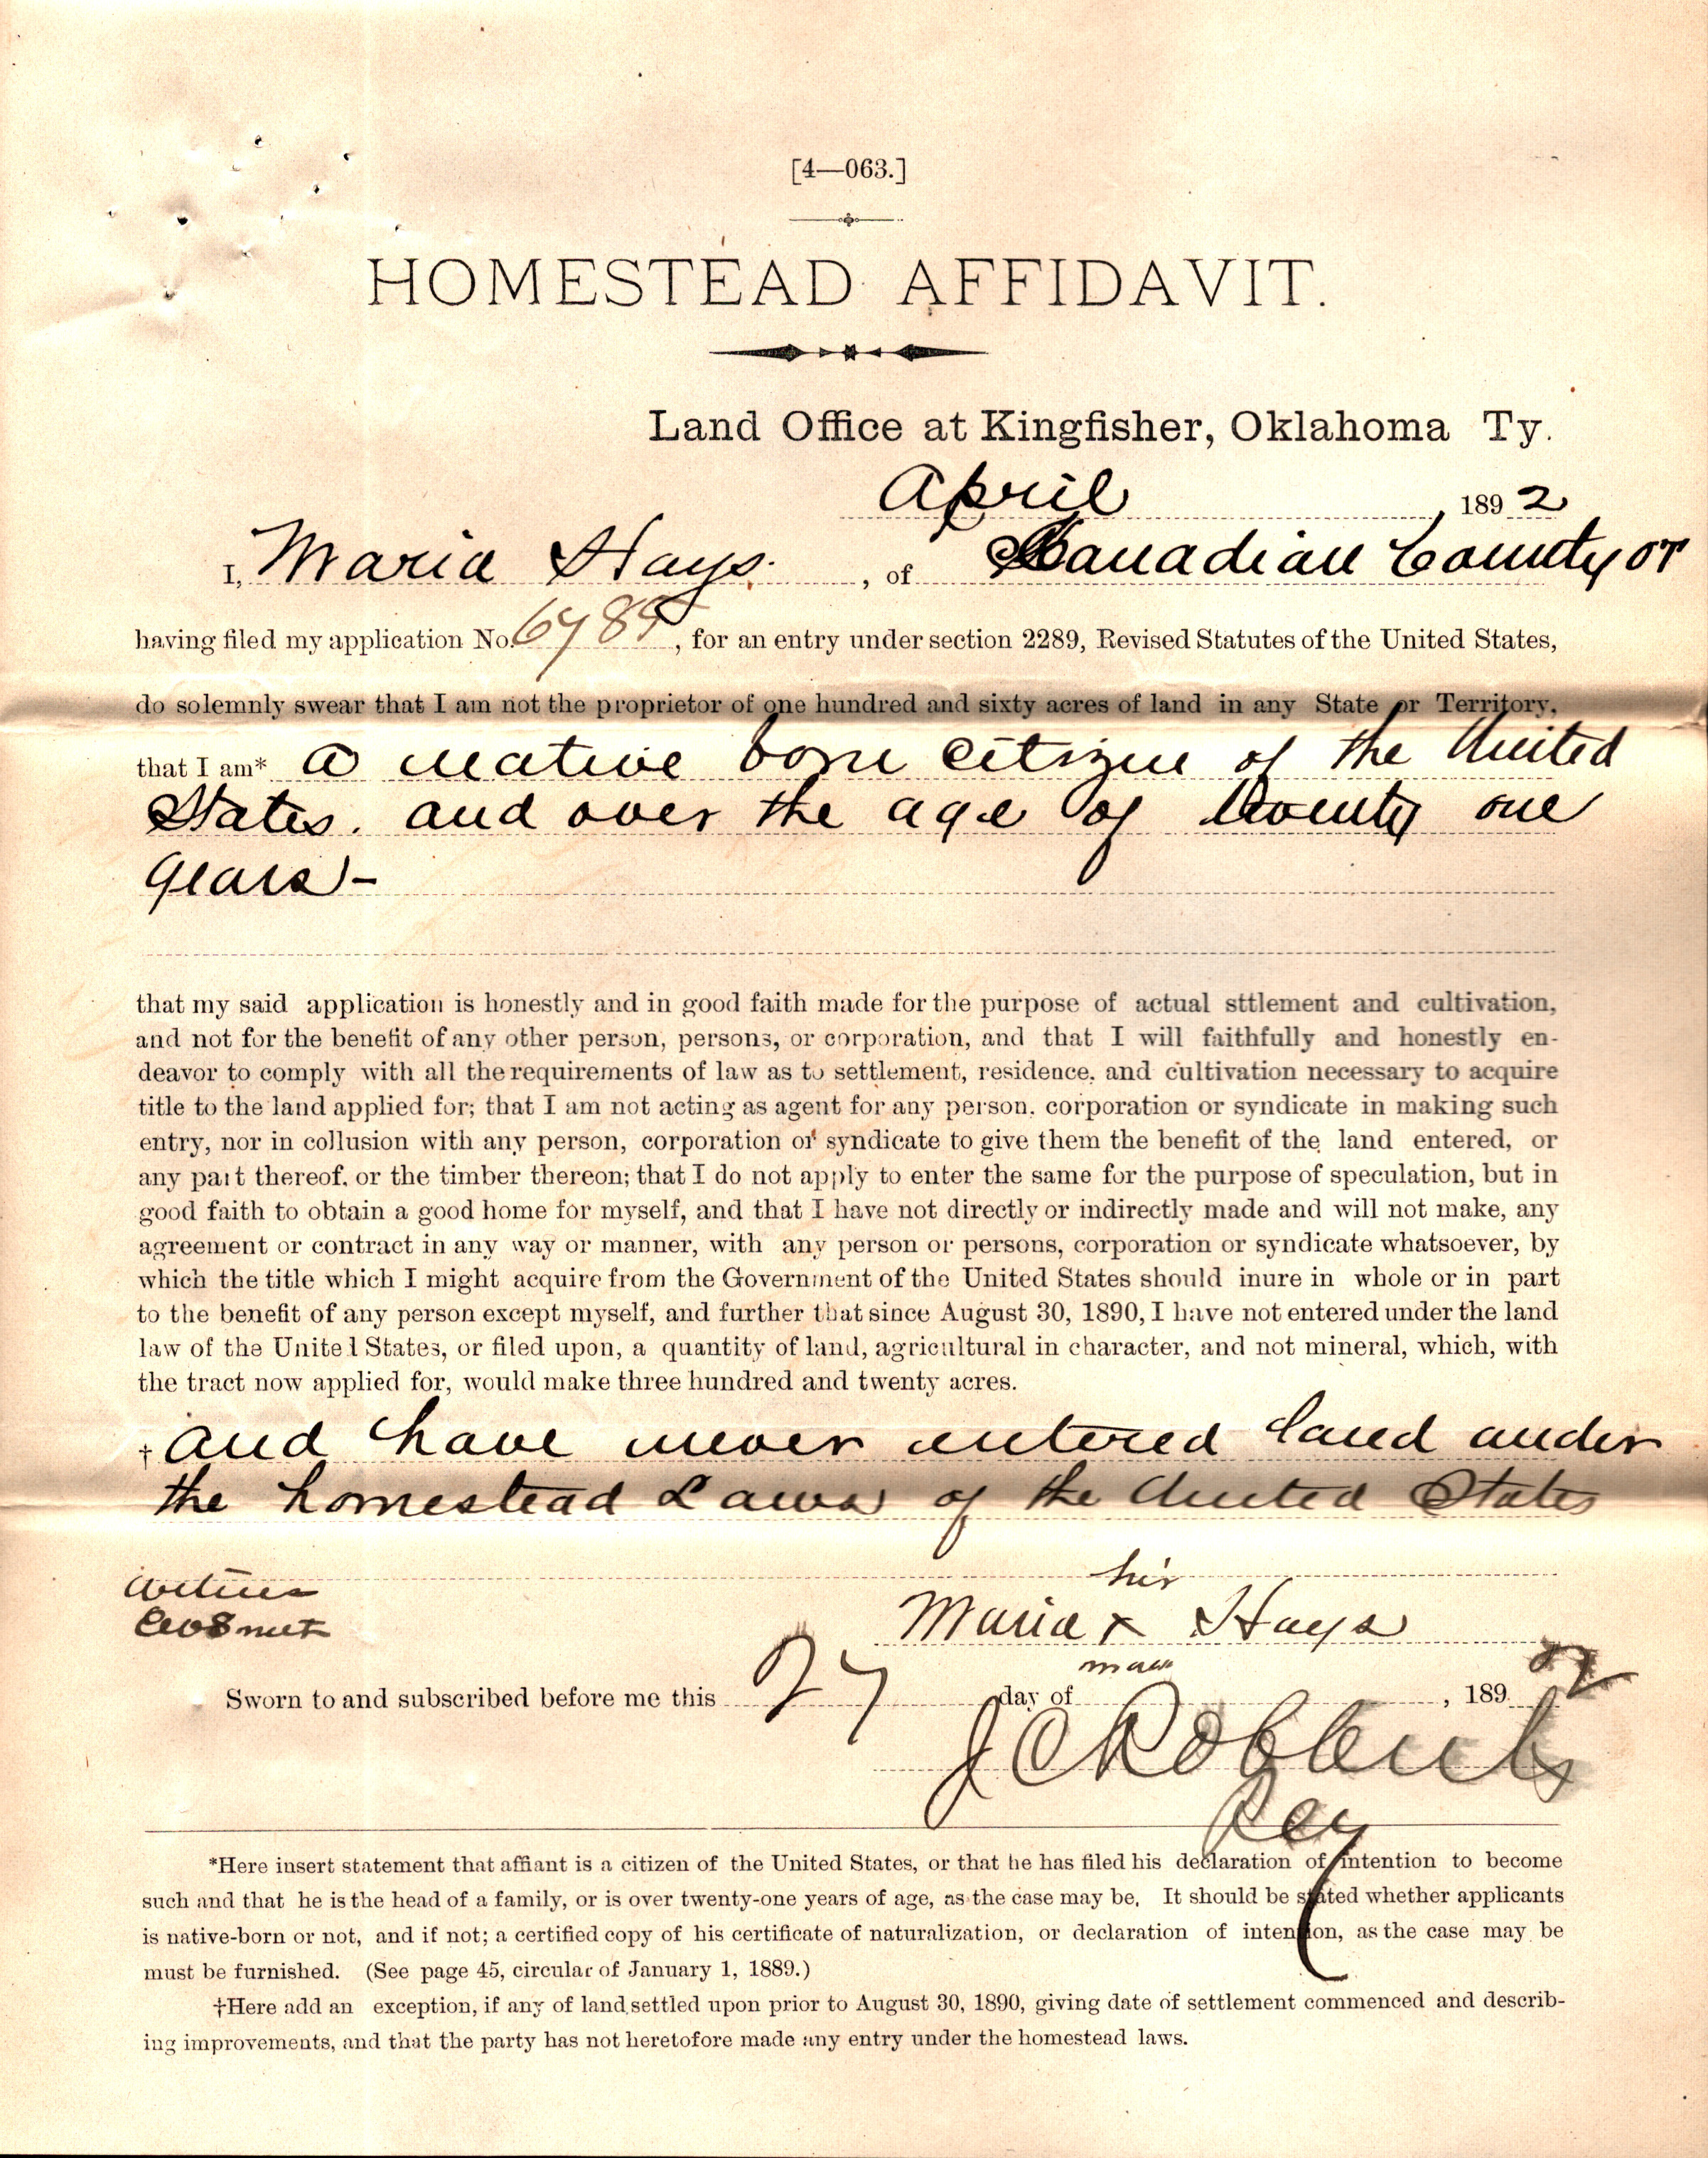 [4—063.]
HOMESTEAD AFFIDAVIT.
Land Office at Kingfisher, Oklahoma Ty.
April, 1892
I, Maria Hays, of Canadian County OT
having filed my application No., for an entry under section 2289, Revised Statutes of the United States,
do solemnly swear that I am not the proprietor of one hundred and sixty acres of land in any State or Territory,
that I am* a native born citizen of the United
States. and over the age of twenty one
years-
that my said application is honestly and in good faith made for the purpose of actual sttlement and cultivation,
and not for the benefit of any other person, persons, or corporation, and that I will faithfully and honestly en-
deavor to comply with all the requirements of law as to settlement, residence, and cultivation necessary to acquire
title to the land applied for; that I am not acting as agent for any person, corporation or syndicate in making such
entry, nor in collusion with any person, corporation or syndicate to give them the benefit of the land entered, or
any part thereof, or the timber thereon; that I do not apply to enter the same for the purpose of speculation, but in
good faith to obtain a good home for myself, and that I have not directly or indirectly made and will not make, any
agreement or contract in any way or manner, with any person or persons, corporation or syndicate whatsoever, by
which the title which I might acquire from the Government of the United States should inure in whole or in part
to the benefit of any person except myself, and further that since August 30, 1890, I have not entered under the land
law of the United States, or filed upon, a quantity of land, agricultural in character, and not mineral, which, with
the tract now applied for, would make three hundred and twenty acres.
† and have never entered land under
the homestead Laws of the United States
Witness
his
Maria x Hays
mark
Sworn to and subscribed before me this 27 day of, 1892
*Here insert statement that affiant is a citizen of the United States, or that he has filed his declaration of intention to become
such and that he is the head of a family, or is over twenty-one years of age, as the case may be. It should be stated whether applicants
is native-born or not, and if not; a certified copy of his certificate of naturalization, or declaration of intention, as the case may be
must be furnished. (See page 45, circular of January 1, 1889.)
†Here add an exception, if any of land settled upon prior to August 30, 1890, giving date of settlement commenced and describ-
ing improvements, and that the party has not heretofore made any entry under the homestead laws.